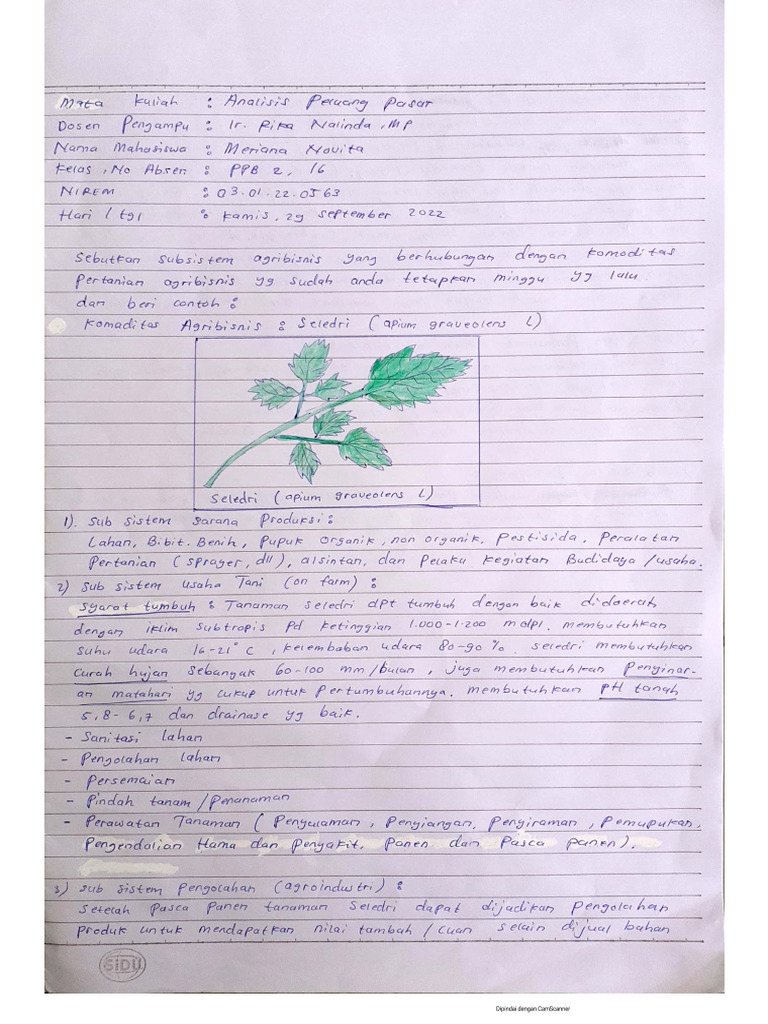 Mata Kuliah : Analisis Peluang Pasar
Dosen Pengampu : Ir. Rika Nalinda, MP
Nama Mahasiswa : Meriana Novita
Kelas, No Absen : PPB 2, 16
NIREM : 03.01.22.0563
Hari / tgl : Kamis, 29 September 2022
Sebutkan subsistem agribisnis yang berhubungan dengan komoditas
Pertanian agribisnis yg sudah anda tetapkan minggu yg lalu
dan beri contoh :
Komaditas Agribisnis : Seledri (apium graveolens L)
Seledri (apium graveolens L)
1). Sub sistem sarana Produksi :
Lahan, Bibit. Benih, Pupuk organik, non organik, Pestisida, Peralatan
Pertanian (sprayer, dll), alsintan, dan Pelaku kegiatan Budidaya /usaha.
2) Sub sistem usaha Tani (on farm) :
Syarat tumbuh : Tanaman seledri dpt tumbuh dengan baik didaerah
dengan iklim subtropis pd ketinggian 1.000-1.200 mdpl. membutuhkan
suhu udara 16-21°C, kelembaban udara 80-90%. seledri membutuhkan
Curah hujan sebanyak 60-100 mm/bulan, juga membutuhkan Penyinar-
an matahari yg cukup untuk Pertumbuhannya. membutuhkan PH tanah
5,8-6,7 dan drainase yg baik.
- Sanitasi lahan
- Pengolahan lahan
- Persemaian
- Pindah tanam /Penanaman
- Perawatan Tanaman (Penyulaman, Penyiangan, Penyiraman, Pemupukan,
Pengendalian Hama dan Penyakit, Panen dan Pasca panen).
3) Sub sistem Pengolahan (agroindustri) :
Setelah Pasca Panen tanaman Seledri dapat dijadikan Pengolahan
Produk untuk mendapatkan nilai tambah / cuan selain dijual bahan
SiDU
Dipindai dengan CamScanner